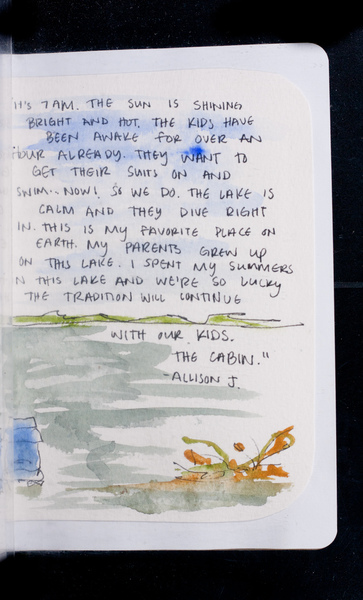 IT'S 7 AM. THE SUN IS SHINING
BRIGHT AND HOT. THE KIDS HAVE
BEEN AWAKE FOR OVER AN
HOUR ALREADY. THEY WANT TO
GET THEIR SUITS ON AND
SWIM... NOW! SO WE DO. THE LAKE IS
CALM AND THEY DIVE RIGHT
IN. THIS IS MY FAVORITE PLACE ON
EARTH. MY PARENTS GREW UP
ON THIS LAKE. I SPENT MY SUMMERS
N THIS LAKE AND WE'RE SO LUCKY
THE TRADITION WILL CONTINUE
WITH OUR KIDS.
THE CABIN."
-ALLISON J.